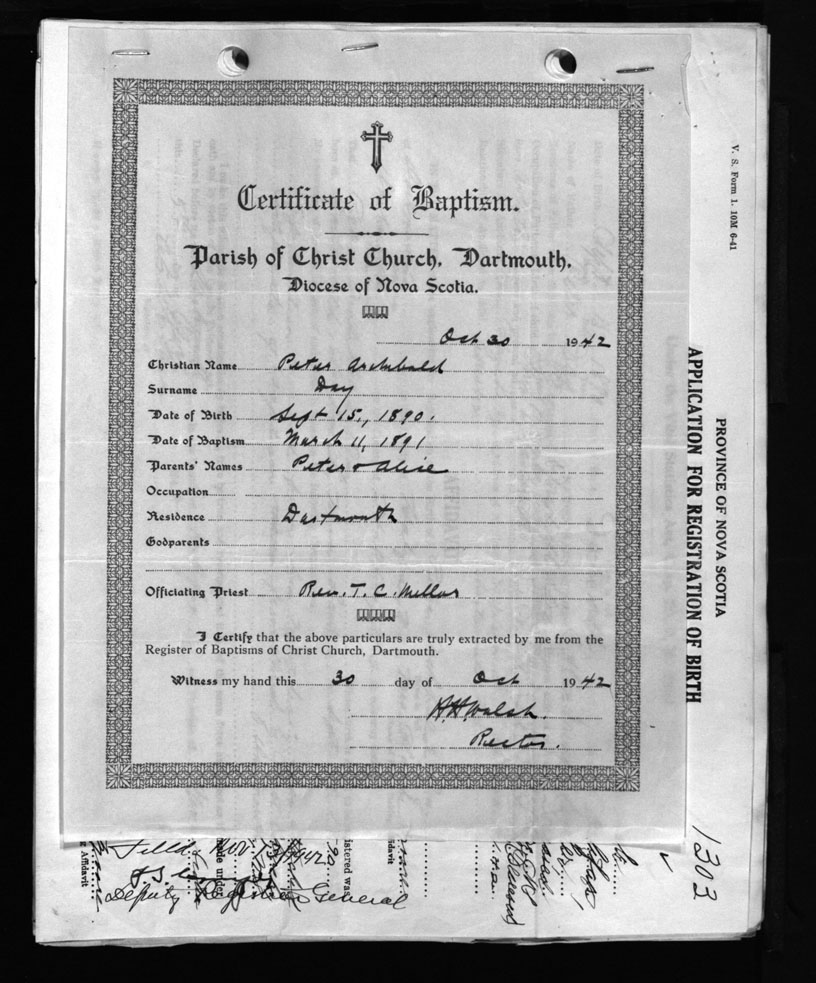 Certificate of Baptism.
Parish of Christ Church, Dartmouth.
Diocese of Nova Scotia.
Oct 30 1942
Christian Name Peter Archibald
Surname Day
Date of Birth Sept 15, 1890.
Date of Baptism March 11, 1891
Parents' Names Peter & Alice
Occupation
Residence Dartmouth
Godparents
Officiating Priest Rev. T. C. Mellor
I Certify that the above particulars are truly extracted by me from the
Register of Baptisms of Christ Church, Dartmouth.
Witness my hand this 30 day of Oct 1942
H. H. Walsh.
Rector.
V. S. Form 1. 10M 6-41
PROVINCE OF NOVA SCOTIA
APPLICATION FOR REGISTRATION OF BIRTH
1303
Filed Nov 1942
Deputy Registrar General
Affidavit
istered was
ade under